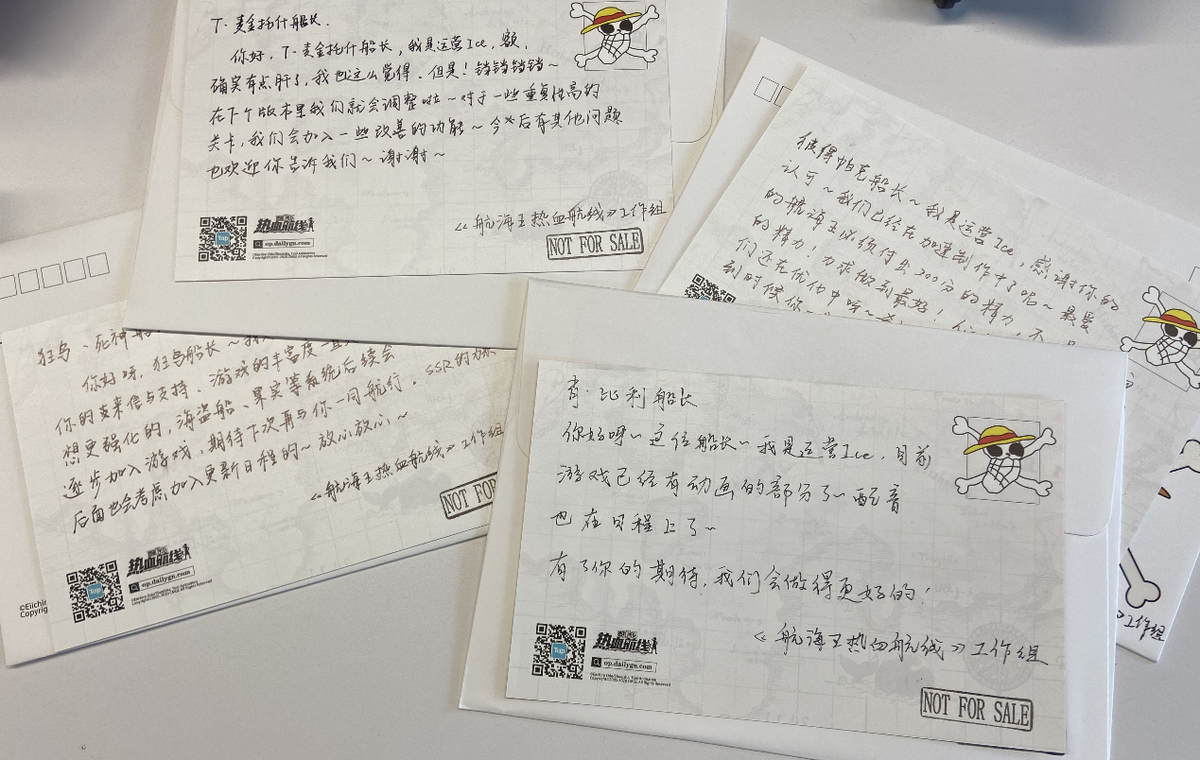 T·麦金托什船长.
你好，T·麦金托什船长，我是运营Ice，额，
确实有点肝了，我也这么觉得。但是！铛铛铛铛~
在下个版本里我们就会调整啦~对于一些重复性高的
关卡，我们会加入一些改善的功能~今后有其他问题
也欢迎你告诉我们~谢谢~
《航海王热血航线》工作组
Tap
热血航线
op.dailygn.com
NOT FOR SALE
彼得帕克船长~我是运营Ice，感谢你的
认可~我们已经在加速制作中了呢~最要
的航海王必须付出200分的精力，不
的精力！力求做到最好！
们还在优化中呀~
到时候你
工作组
狂鸟、死神船
你好呀，狂鸟船长~我
你的来信与支持、游戏的丰富度一直
想更强化的，海盗船、果实等系统后续会
逐步加入游戏，期待下次再与你一同航行。SSR的
后面也会考虑加入更新日程的~放心放心~
《航海王热血航线》工作组
NOT FOR
Tap
热血航线
op.dailygn.com
©Eiichir
Copyrig
肯·比利船长
你好呀~这位船长~我是运营Ice，目前
游戏已经有动画的部分了~配音
也在日程上了~
有了你的期待，我们会做得更好的！
《航海王热血航线》工作组
Tap
热血航线
op.dailygn.com
NOT FOR SALE